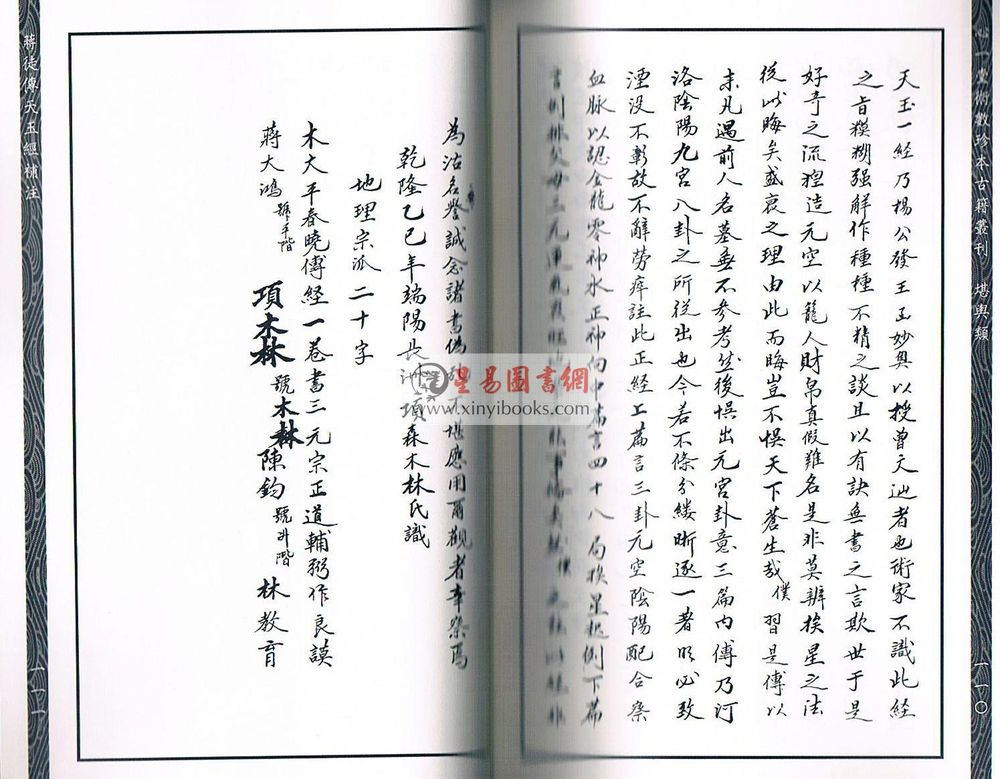 心一堂術數珍本古籍叢刊 堪輿類
一一〇
天玉一經乃楊公發王至妙奧以授曾文辿者也術家不識此經
之旨糢糊强解作種種不精之談且以有訣無書之言欺世于是
好奇之流捏造元空以籠人財帛真假難名是非莫辨挨星之法
從此晦矣盛衰之理由此而晦豈不悞天下蒼生哉僕習是傳以
來凡遇前人名墓無不參考然後悞出元宮卦意三篇內傳乃河
洛陰陽九宮八卦之所從出也今若不條分縷晰逐一著明必致
湮沒不彰故不辭勞瘁註此正經上篇言三卦元空陰陽配合祭
血脉以認金龍零神水正神向中篇言四十八局挨星起例下篇
言例排父母三元運
為沽名譽誠念諸書偽 不堪應用爾觀者幸祭焉
乾隆乙巳年端陽長洲項森木林氏識
地理宗派二十字
木大平春曉傳經一卷書三元宗正道輔弼作良謨
蔣大鴻 號平階 項木林 號木林 陳鈞 號升階 林教育
蔣徒傳天玉經補注
一一一
星易圖書網
www.xinyibooks.com